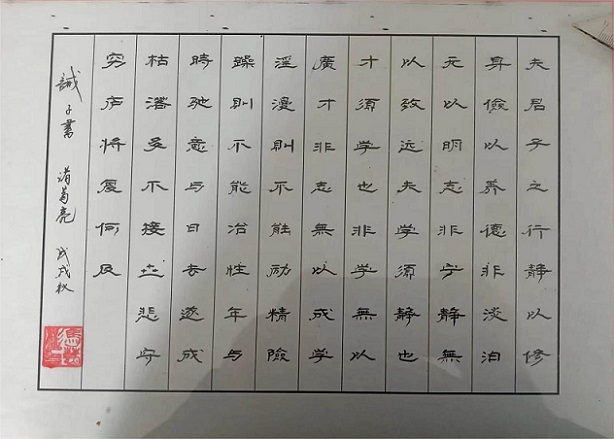 夫君子之行静以修
身儉以养德非淡泊
无以明志非宁静無
以致远夫学須静也
才須学也非学無以
廣才非志無以成学
淫漫則不能励精險
躁則不能冶性年与
時驰意与日去遂成
枯落多不接世悲守
穷庐将复何及
誡子書 诸葛亮 戊戌秋